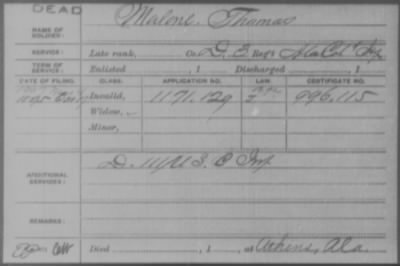 DEAD
NAME OF SOLDIER: Malone, Thomas
SERVICE: Late rank, Co. D, 3 Reg't Ala Col Inf
TERM OF SERVICE: Enlisted , 1 Discharged , 1
DATE OF FILING. CLASS. APPLICATION NO. LAW. CERTIFICATE NO.
Invalid, 1171.129 996.115
Widow,
Minor,
ADDITIONAL SERVICES: D. 111 U S. C Inf
REMARKS:
Died , 1 , at Athens, Ala.